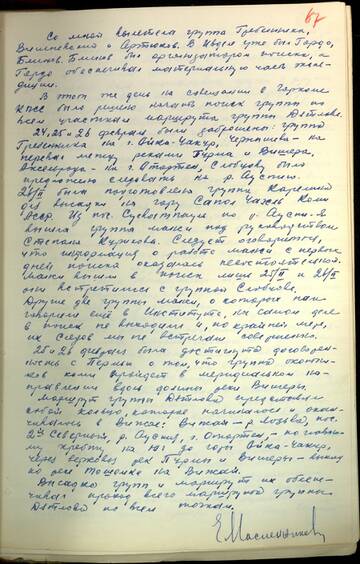 67
Со мной вылетела группа Гребенника,
Вишневский и Артюков. В Ивделе уже был Гордо,
Блинов. Блинов был организатором поиска, а
Гордо обеспечивал материальную часть экспе-
диции.
В этот же день на совещании в горкоме
КПСС было решено начать поиск группы по
всем участкам маршрута группы Дятлова.
24, 25 и 26 февраля были заброшены: группа
Гребенника на г. Ойка-Чакур, Чернышева - на
перевал между реками и Вишера,
Аксельрода - на г. Отортен, Слобцову было
предложено следовать на р. Ауспию.
26/II была подготовлена группа Карелина
для высадки на гору Сапал Чахль Коми
Асср. Из пос. Суеватпауль по р. Ауспи-Я
вышла группа манси под руководством
Степана Курикова. Следует оговориться,
что информация о работе манси с первых
дней поиска оказалась несостоятельной.
Манси вышли в поиск лишь 25/II и 26/II
они встретились с группой Слобцова.
Другие две группы манси, о которых нам
говорили ещё в Институте, на самом деле
в поиск не выходили и, по крайней мере,
их следов мы не встречали совершенно.
25 и 26 февраля была достигнута договорен-
ность с Пермью о том, что группа охотни-
ков коми пройдет в меридианальном на-
правлении вдоль долины реки Вишеры.
Маршрут группы Дятлова представлял
собой кольцо, которое начиналось и окан-
чивалось в Вижае: Вижай - р. Лозьва, пос.
2й Северный, р. Ауспия, г. Отортен, - по главно-
му хребту на юг до горы Ойка-Чакур,
через верховья рек и Вишеры - выход
по реке Тошемке на Вижай.
Высадка групп и маршрут их обеспе-
чивал проход всего маршрута группы
Дятлова по всем точкам.
Е Масленников